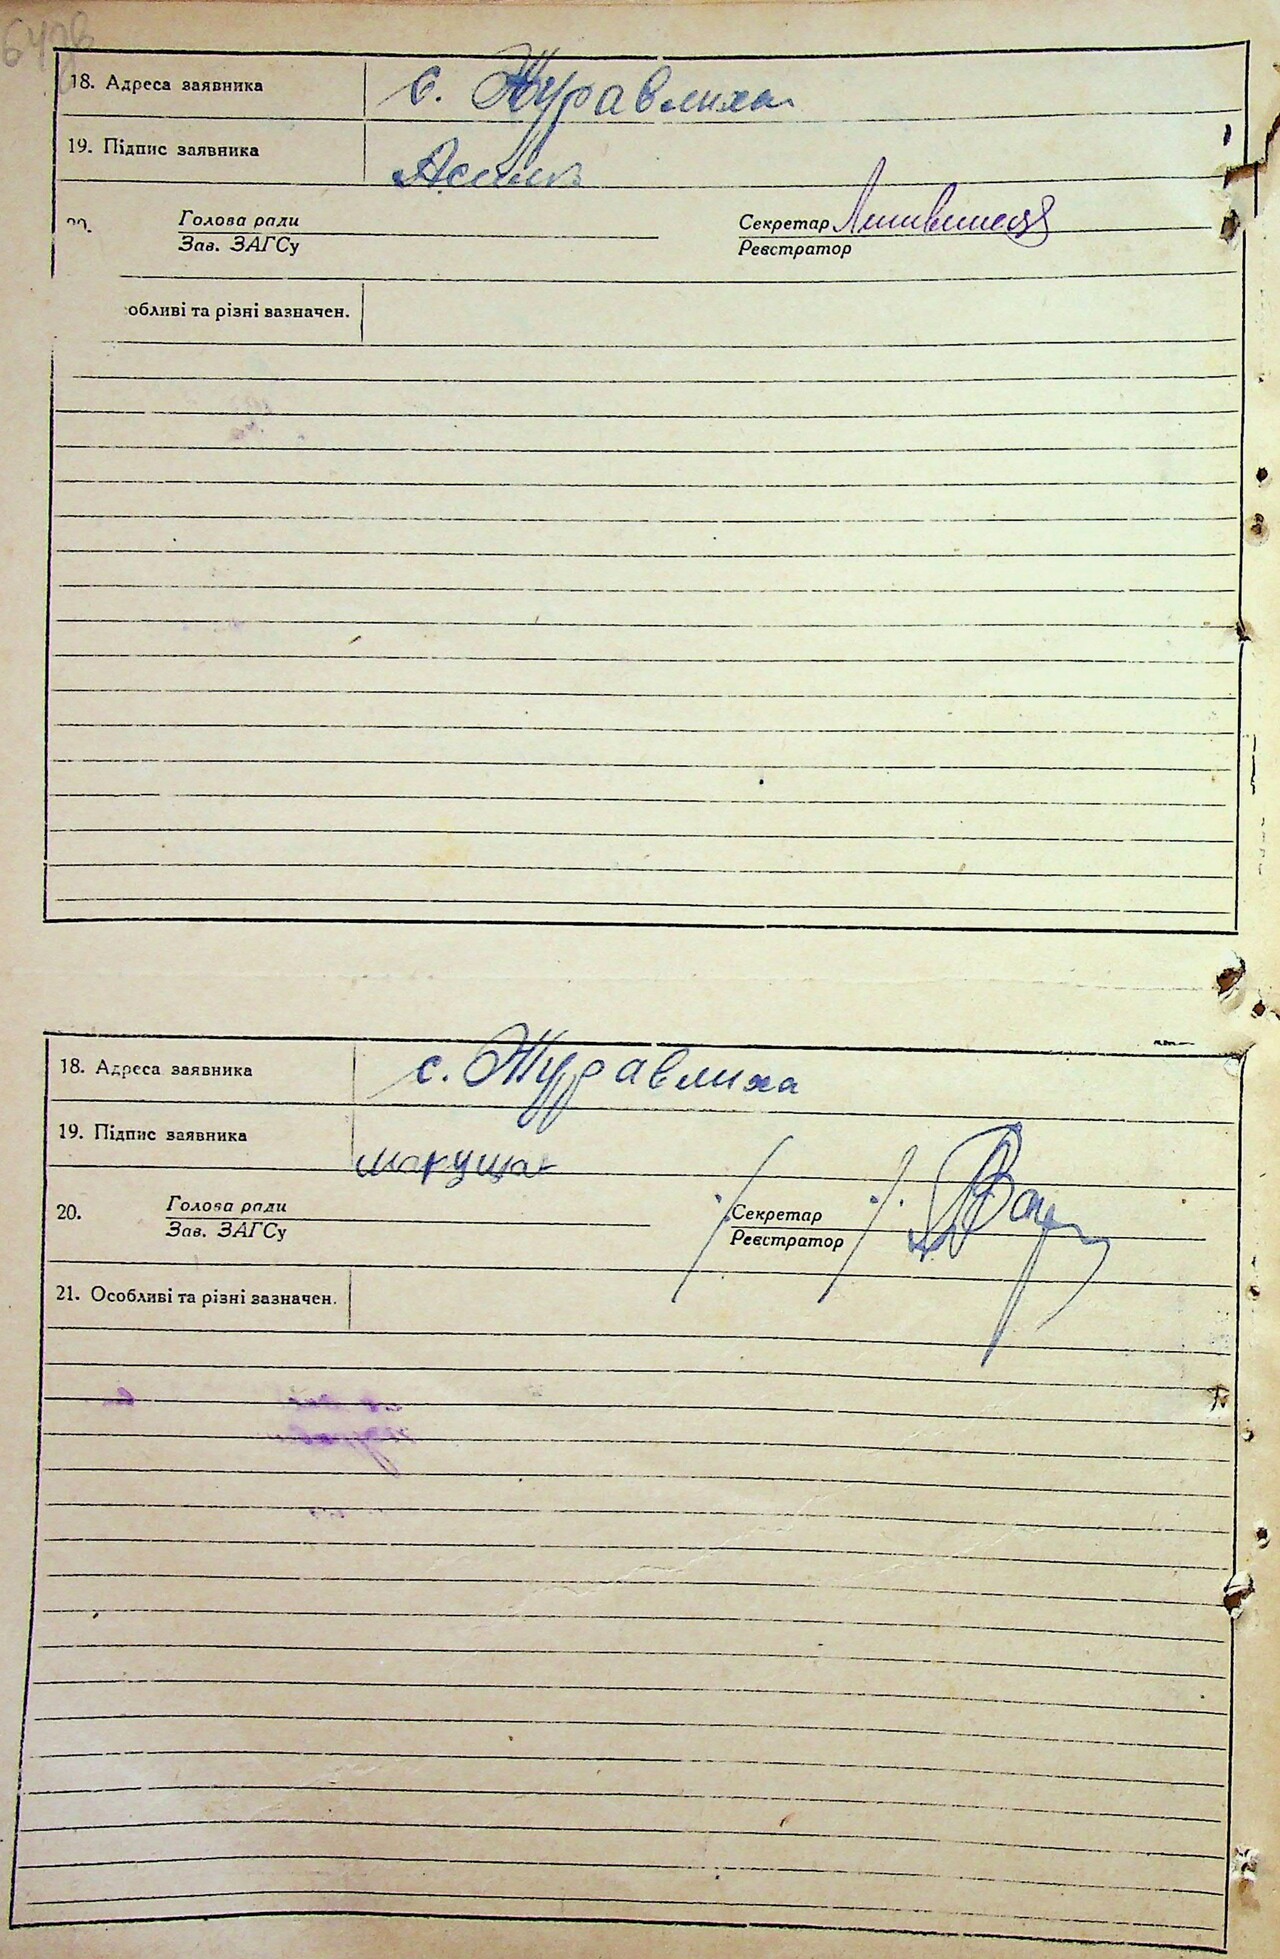 18. Адреса заявника с. Журавлиха
19. Підпис заявника
Голова ради Секретар
Зав. ЗАГСу Реєстратор
обливі та різні вазначен.
18. Адреса заявника с. Журавлиха
19. Підпис заявника макуща
20. Голова ради Секретар
Зав. ЗАГСу Реєстратор
21. Особливі та різні зазначен.